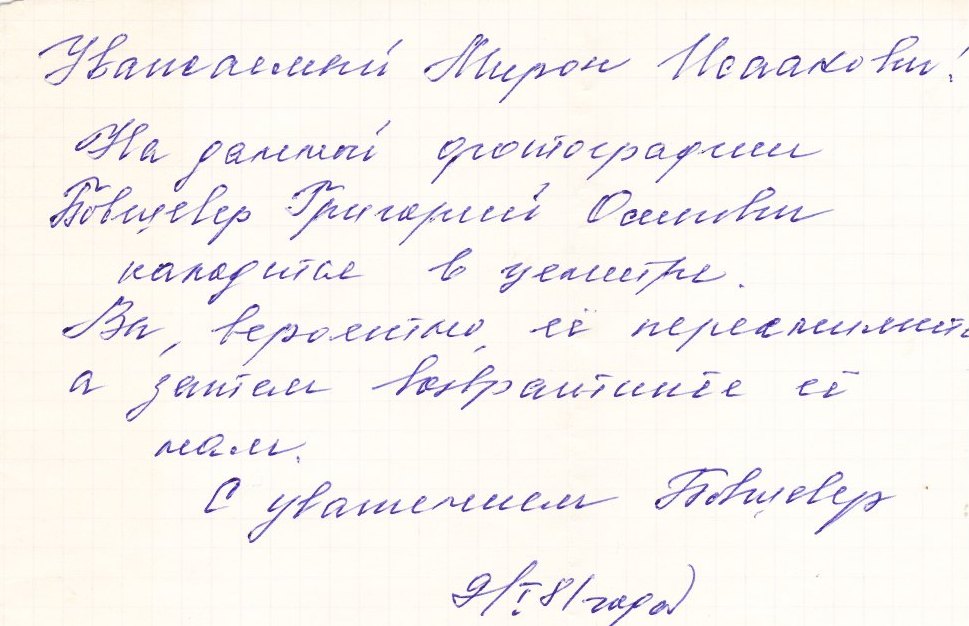 Уважаемый Мирон Исаакович!
На данной фотографии
Бовшевер Григорий Осипович
находится в центре.
Вы, вероятно, её переснимите
а затем возвратите её
нам.
С уважением Бовшевер
9/I 81 года